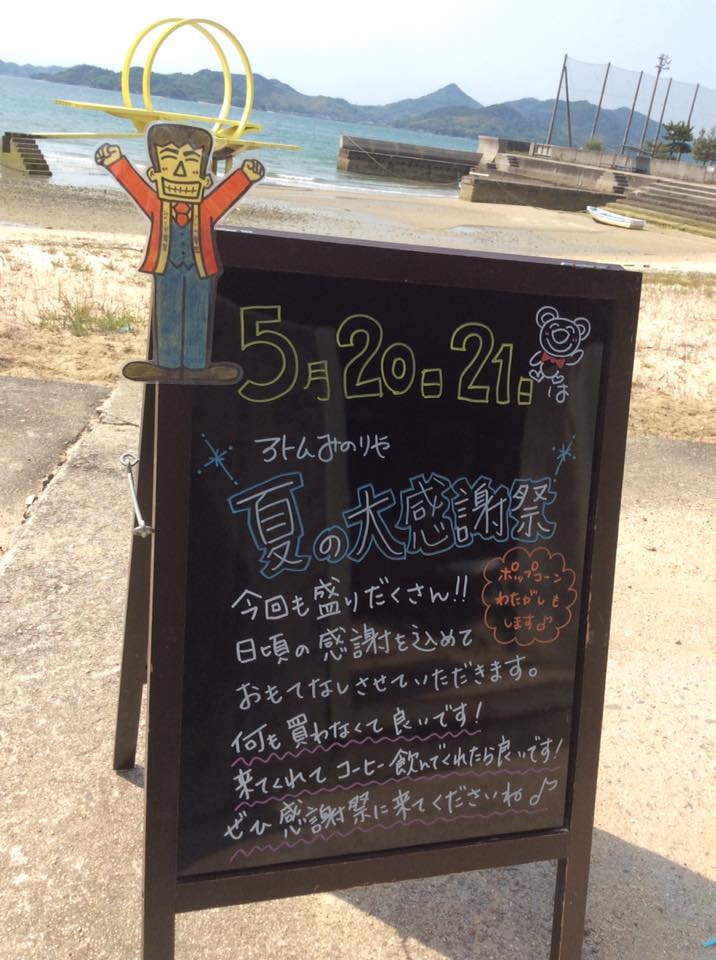 5月20日21日は
ろトムみのりや
夏の大感謝祭
ポップコーン
わたがしも
します♪
今回も盛りだくさん!!
日頃の感謝を込めて
おもてなしさせていただきます。
何も買わなくて良いです!
来てくれてコーヒー飲んでくれたら良いです!
ぜひ感謝祭に来てくださいね♪